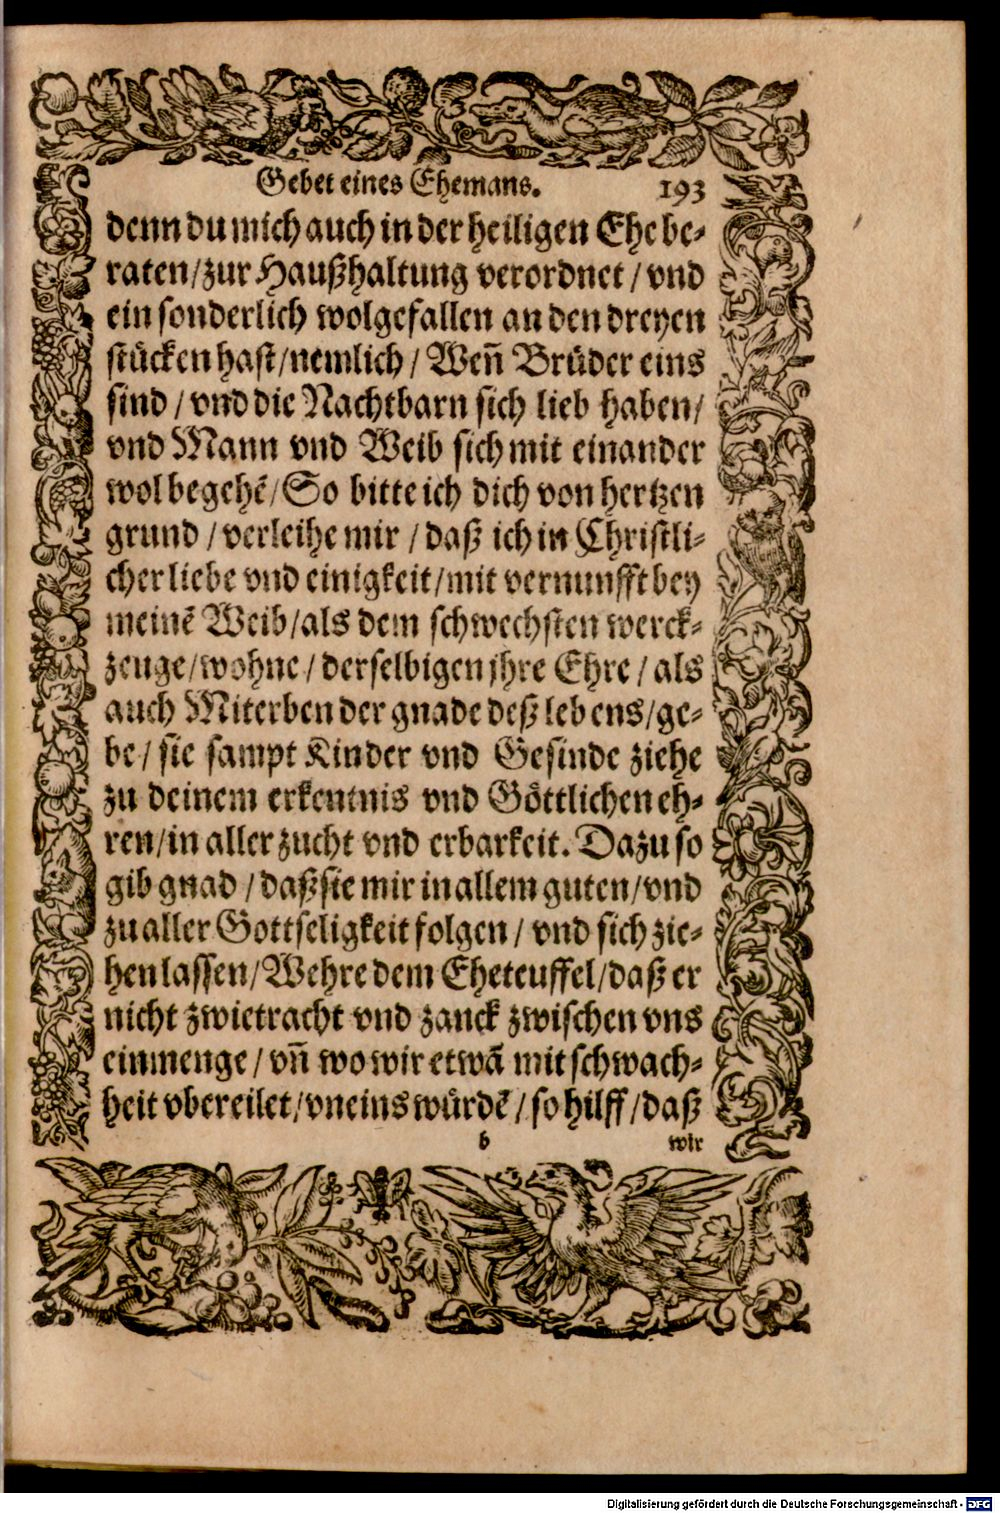 Gebet eines Ehemans. 193
denn du mich auch in der heiligen Ehe be-
raten/zur Haußhaltung verordnet/vnd
ein sonderlich wolgefallen an den dreyen
stücken hast/nemlich/Wen̄ Brüder eins
sind/vnd die Nachtbarn sich lieb haben/
vnd Mann vnd Weib sich mit einander
wol begehē/So bitte ich dich von hertzen
grund/verleihe mir/daß ich in Christli-
cher liebe vnd einigkeit/mit vernunfft bey
meinē Weib/als dem schwechsten werck-
zeuge/wohne/derselbigen jhre Ehre/als
auch Miterben der gnade deß lebens/ge-
be/sie sampt Kinder vnd Gesinde ziehe
zu deinem erkentnis vnd Göttlichen eh-
ren/in aller zucht vnd erbarkeit. Dazu so
gib gnad/daß sie mir in allem guten/vnd
zu aller Gottseligkeit folgen/vnd sich zie-
hen lassen/Wehre dem Eheteuffel/daß er
nicht zwietracht vnd zanck zwischen vns
einmenge/vn̄ wo wir etwā mit schwach-
heit vbereilet/vneins würdē/so hilff/daß
b wir
Digitalisierung gefördert durch die Deutsche Forschungsgemeinschaft - DFG